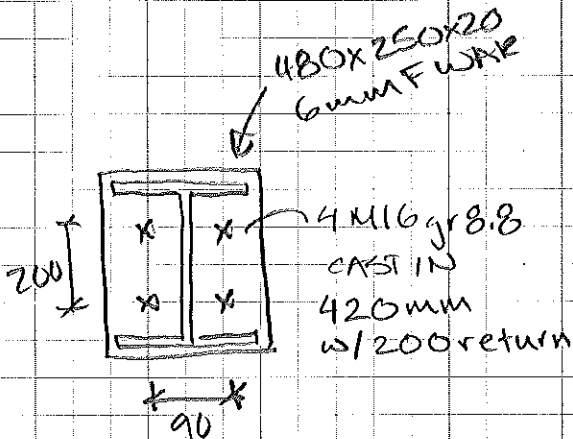 480x250x20
6mm F WAR
4 M16 gr 8.8
CAST IN
420mm
w/ 200 return
200
90